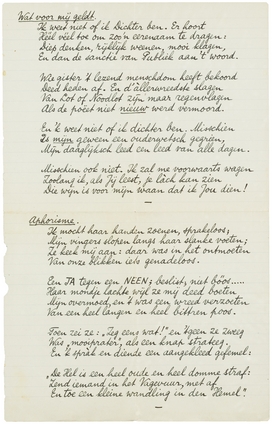 Wat voor mij geldt.
Ik weet niet of ik Dichter ben. Er hoort
Heel veel toe om zoo'n eerenaam te dragen:
Diep denken, rijklijk weenen, mooi klagen,
En dan de sanctie van Publiek aan 't woord.
Wie gister 't lezend menschdom heeft bekoord
Deed heden af. En d'allerwreedste slagen
Van Lot of Noodlot zijn maar regenvlagen
Als de poëet niet nieuw werd vermoord.
En 'k weet niet of ik dichter ben. Misschien
Is mijn geween een ouderwetsch gegrien,
Mijn daaglijksch leed een leed van alle dagen.
Misschien ook niet. Ik zal me voorwaarts wagen
Zoolang ik, als Jij leest, je lach kan zien
Die wijn is voor mijn waan dat ik Jou dien!
—
Aphorisme.
Ik mocht haar handen zoenen, sprakeloos;
Mijn vingers slopen langs haar slanke voeten;
Ze keek mij aan: daar was in het ontmoeten
Van onze blikken iets genadeloos.
Een JA tegen een NEEN; beslist, niet böös.....
Haar mondje lachte wijl ze mij deed boeten
Mijn overmoed, en 't was een wreed verzoeten
Van een heel langen en heel bittren poos.
Toen zei ze: "Zeg eens wat!" En 'tgeen ze zweeg
Was "mooiprater", als een knap strateeg.
En 'k sprak en diende een aangekleed gefemel:
"De Hel is een heel oude en heel domme straf:
Zend iemand in het Vagevuur, met af
En toe een kleine wandling in den Hemel".
—